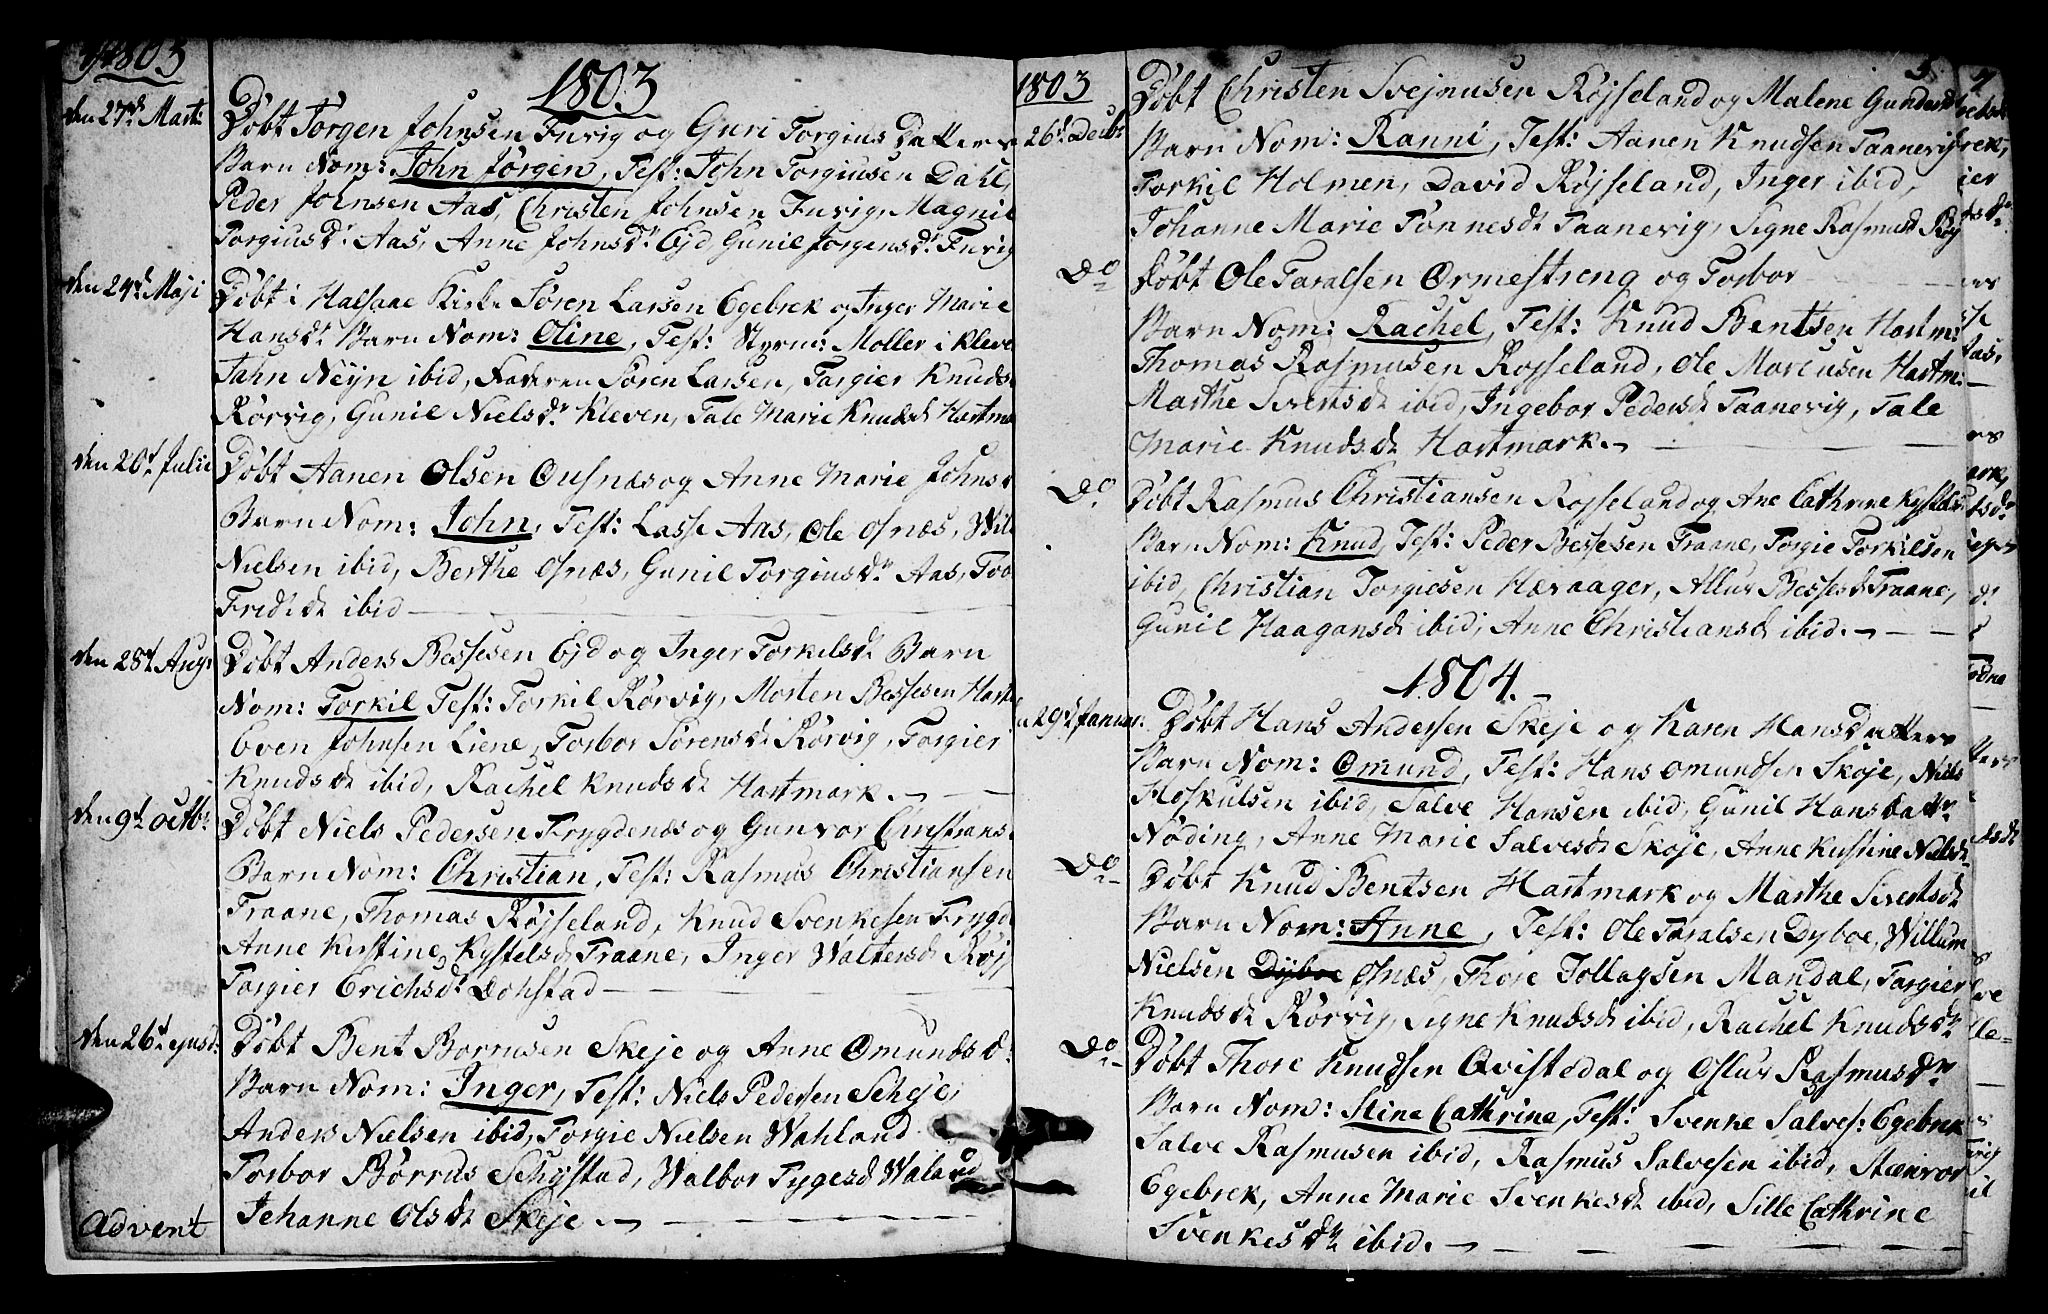 1803
1803
den 27d Marti
Døbt Jørgen Johnsen Furvig og Guri Torgius Datters
Barn Nom: John Jørgen, Test: John Torgiusen Dahl,
Peder Johnsen Aas, Christen Johnsen Furvig, Magnil
Torgiusdr Aas, Anne Johnsdr Ejd Gunil Jørgensdr Furvig
den 24d Maji
Døbt i Halsaae Kirke Søren Larsen Egebrek og Inger Marie
Hansdr Barn Nom: Oline, Test: Styrm: Moller i Kleve
Jahn Neÿn ibid, Faderen Søren Larsen, Targier Knuds
Rørvig, Gunil Nielsdr Kleven, Tale Marie Knudsd Hartma
den 20d Julii
Døbt Aanen Olsen Ousnæs og Anne Marie Johnsd
Barn Nom: John, Test: Lasse Aas, Ole Osnæs, Wil
Nielsen ibid, Berthe Osnæs, Gunil Torgiusdr Aas, Too
Fredsdr ibid
den 28d Aug:
Døbt Anders Bessesen Ejd og Inger Torkelsdr Barn
Nom: Torkil Test: Torkil Rørvig, Morten Bessesen Hart
Even Johnsen Liene, Torbor Sørensdr Rørvig, Torgier
Knudsdr ibid, Rachel Knudsdr Hartmark.
den 9d Octb:
Døbt Niels Pedersen Frygdenæs og Gunvor Christians
Barn Nom: Christian, Test: Rasmus Christiansen
Traane, Thomas Røjseland, Knud Svenkesen Frygd
Anne Kirstine Kystelsd Traane, Inger Waltersd Røj
Targier Erichsdr Dohstad
den 26d ejusd:
Døbt Bent Borrusen Skeje og Anne Omundsd:
Barn Nom: Inger, Test: Niels Pedersen Skeje,
Anders Nielsen ibid, Torgie Nielsen Wahland
Torbor Børrus Skystad, Walbor Tygesd Waland
Jehanne Olsdr Skeje.
Advent
1803
5
26d Decbr
Døbt Christen Svejnusen Røjseland og Malene Gundersd
Barn Nom: Ranni, Test: Aanen Knudsen Taanevig
Torkil Holmen, David Røjseland, Inger ibid,
Johanne Marie Tønnesdr Taanevig, Signe Rasmusd Røj
Do
Døbt Ole Taralsen Ormestreng og Torbor
Barn Nom: Rachel, Test: Knud Bentsen Hartm:
Thomas Rasmusen Rojseland, Ole Marcusen Hartm:
Marthe Sivertsdr ibid, Ingebor Pedersdr Taanevig, Tale
Marie Knudsdr Hartmark.
Do
Døbt Rasmus Christiansen Rojseland og Ane Cathrine Kystels
Barn Nom: Knud, Test: Peder Bessesen Traane, Torgie Torkilsen
ibid, Christian Torgiesen Hævaager, Allur Bessesd Traane,
Gunil Haagansd ibid, Anne Christiansd ibid.
1804.
29d Januar:
Døbt Hans Andersen Skeje og Karen Hansdatters
Barn Nom: Omund, Test: Hans Omundsen Skoje, Niels
Hoskulsen ibid, Salve Hansen ibid, Gunil Hansdattr
Nøding, Anne Marie Salvesdr Skoje, Anne Kirstine Nielsdr
Do
Døbt Knud Bentsen Hartmark og Marthe Sivertsdr
Barn Nom: Anne, Test: Ole Taralsen Dyboe, Willum
Nielsen Dyboe Osnæs, Thore Tollagsen Mandal, Targier
Knudsdr Rørvig, Signe Knudsd ibid, Rachel Knudsdr
Do
Døbt Thore Knudsen Qvistedal og Oslur Rasmusdr
Barn Nom: Stine Cathrine, Test: Svenke Salves: Egebrek
Salve Rasmusen ibid, Rasmus Salvesen ibid, Stænvor
Egebrek, Anne Marie Svenkesdr ibid, Sille Cathrine
Svenkesdr ibid.